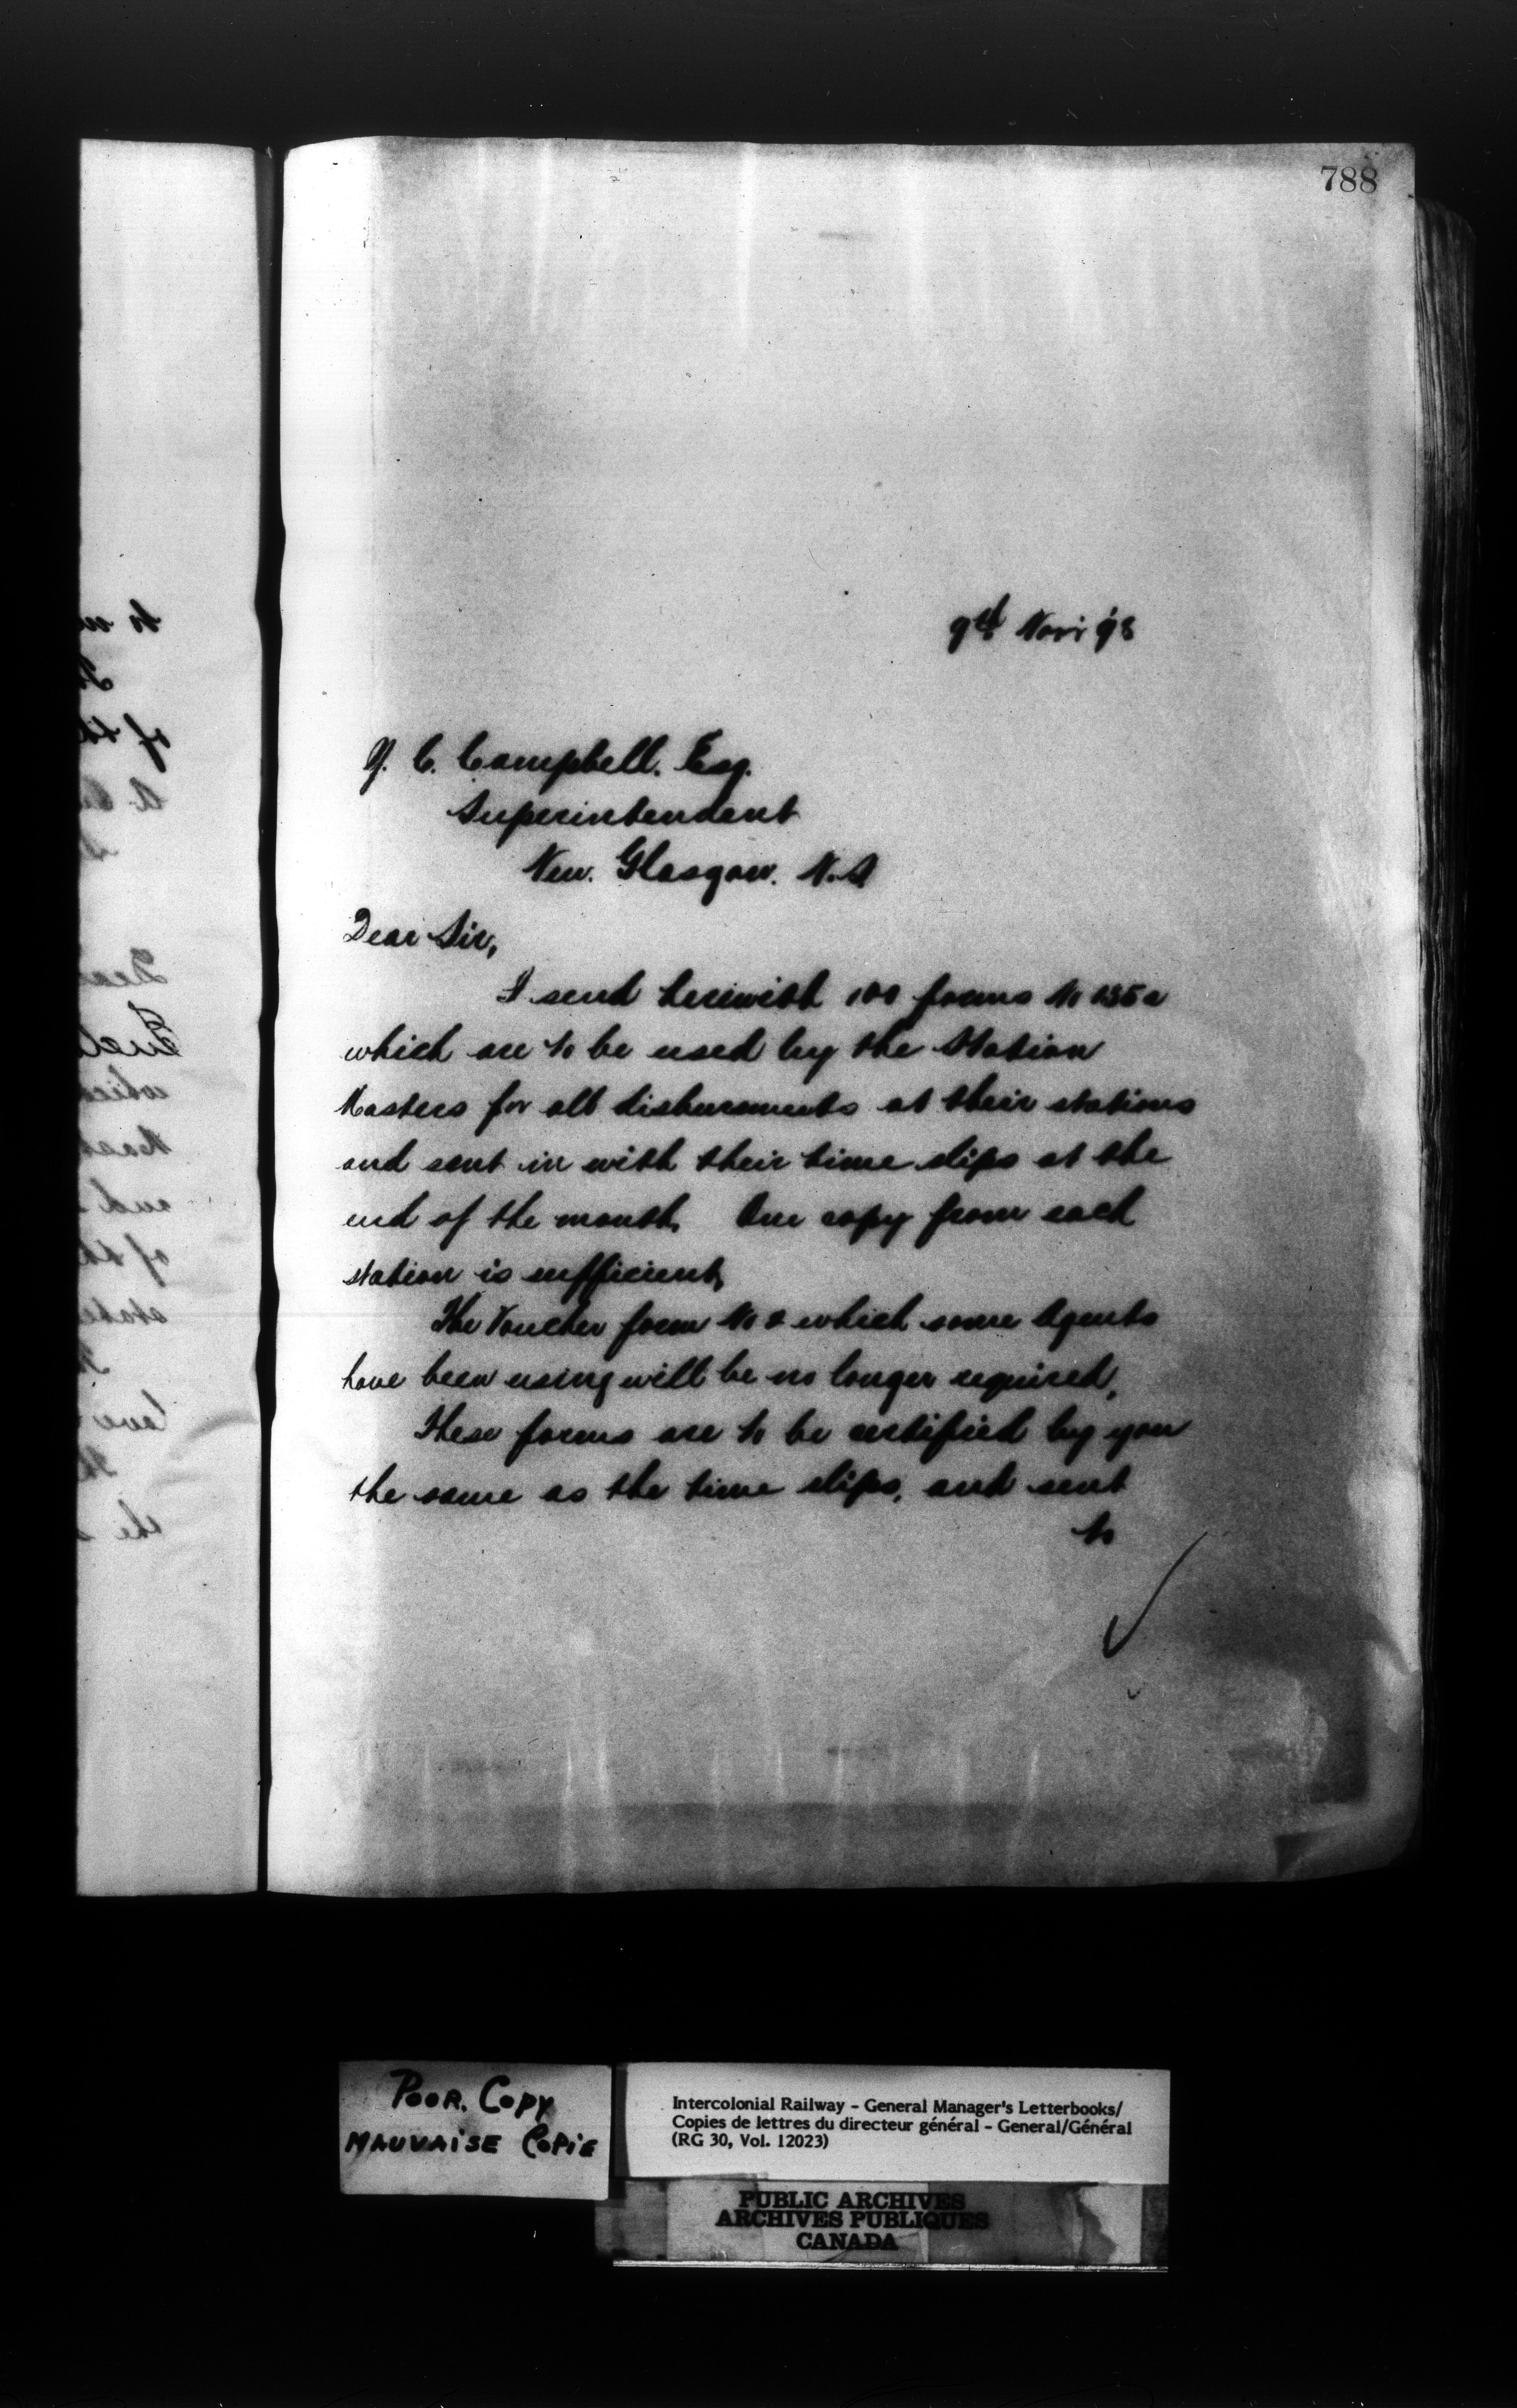 788
9th Nov: 98
Y. C. Campbell. Esq.
Superintendent
New. Glasgow. N.S
Dear Sir,
I send herewith 100 forms No 135a
which are to be used by the Station
Masters for all disbursements at their stations
and sent in with their time slips at the
end of the month. One copy from each
station is sufficient,
The Voucher form No 2 which some Agents
have been using will be no longer required,
These forms are to be certified by you
the same as the time slips, and sent
to
POOR. COPY
MAUVAISE COPIE
Intercolonial Railway - General Manager's Letterbooks/
Copies de lettres du directeur général - General/Général
(RG 30, Vol. 12023)
PUBLIC ARCHIVES
ARCHIVES PUBLIQUES
CANADA